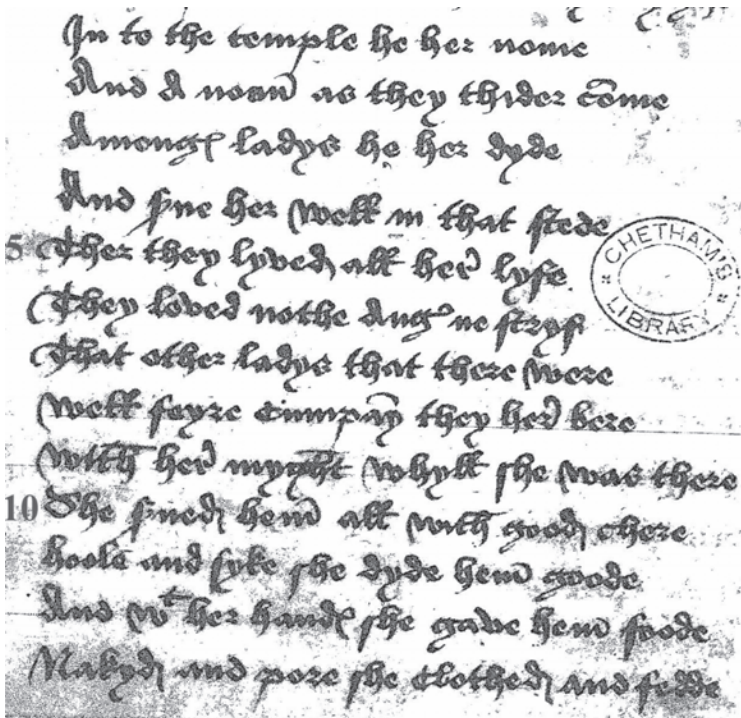 In to the temple he her nome
And A noan as they thider come
Among ladys he her dyde
And sue her well in that stede
5 Ther they lyved all her lyfe
They loved nothe Ang ne stryf
That other ladys that there were
Well fayre cumpany they her bere
With her myght whyll she was there
10 She sued hem all with good chere
hoole and syke she dyde hem goode
And wt her hand she gave hem foode
Nakyd and pore she clothed and fedde
CHETHAM'S LIBRARY